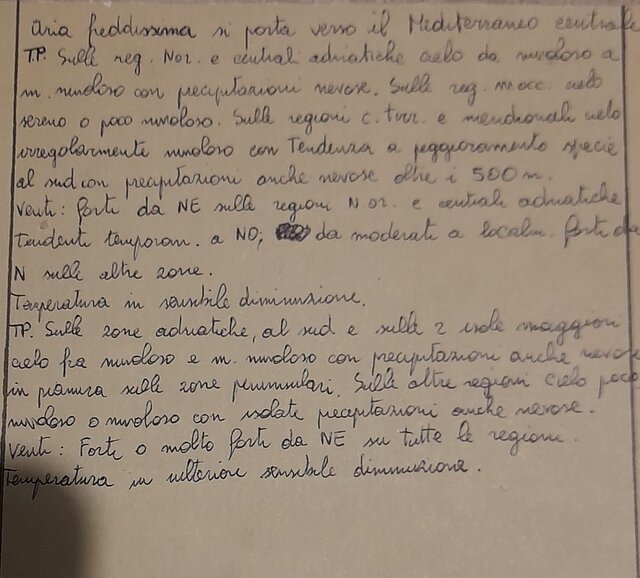 Aria freddissima si porta verso il Mediterraneo centrale
T.P. Sulle reg. Nor. e central adriatiche cielo da nuvoloso a
m. nuvoloso con precipitazioni nevose. Sulle reg. N occ. cielo
sereno o poco nuvoloso. Sulle regioni c. tirr. e meridionali cielo
irregolarmente nuvoloso con Tendenza a peggioramento specie
al sud con precipitazioni anche nevose oltre i 500 m.
Venti: forti da NE sulle regioni N or. e centrali adriatiche
Tendenti temporan. a NO; da moderati a localm. forti da
N sulle altre zone.
Temperatura in sensibile diminuzione.
TP. Sulle zone adriatiche, al sud e sulle 2 isole maggiori
cielo fra nuvoloso e m. nuvoloso con precipitazioni anche nevose
in pianura sulle zone peninsulari. Sulle altre regioni cielo poco
nuvoloso o nuvoloso con isolate precipitazioni anche nevose.
Venti: Forti o molto forti da NE su tutte le regioni.
Temperatura in ulteriore sensibile diminuzione.